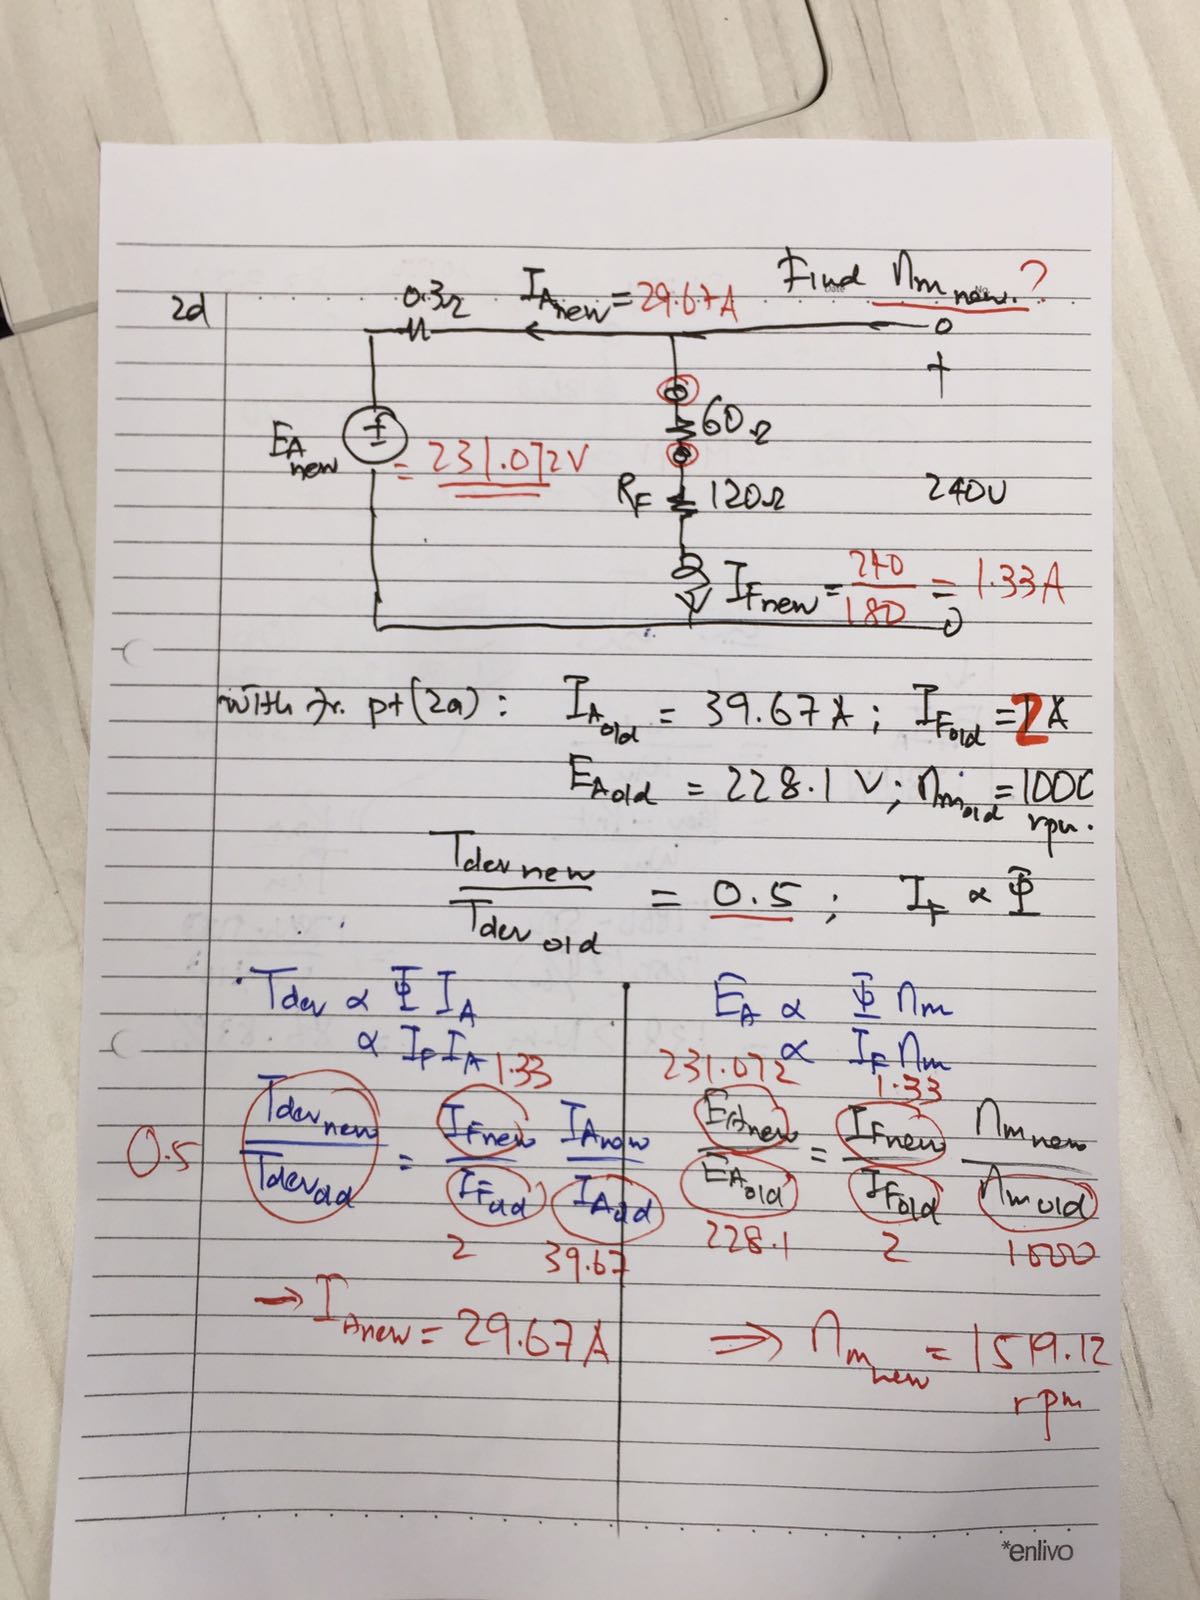 2d
0.3Ω I_Anew = 29.67A Find n_m new.?
+
60Ω
E_A new ± = 231.072V
R_F 120Ω 240V
I_Fnew = 240/180 = 1.33A
with fr. pt(2a): I_Aold = 39.67A; I_Fold = 2A
E_Aold = 228.1 V; n_m old = 1000 rpm.
T_dev new / T_dev old = 0.5; I_F ∝ Φ
T_dev ∝ Φ I_A
∝ I_F I_A
1.33
0.5 T_dev new / T_dev old = I_Fnew / I_Fold I_Anew / I_Aold
2 39.67
→ I_Anew = 29.67A
E_A ∝ Φ n_m
∝ I_F n_m
231.072 1.33
E_Anew / E_Aold = I_Fnew / I_Fold n_m new / n_m old
228.1 2 1000
⇒ n_m new = 1519.12 rpm
*enlivo